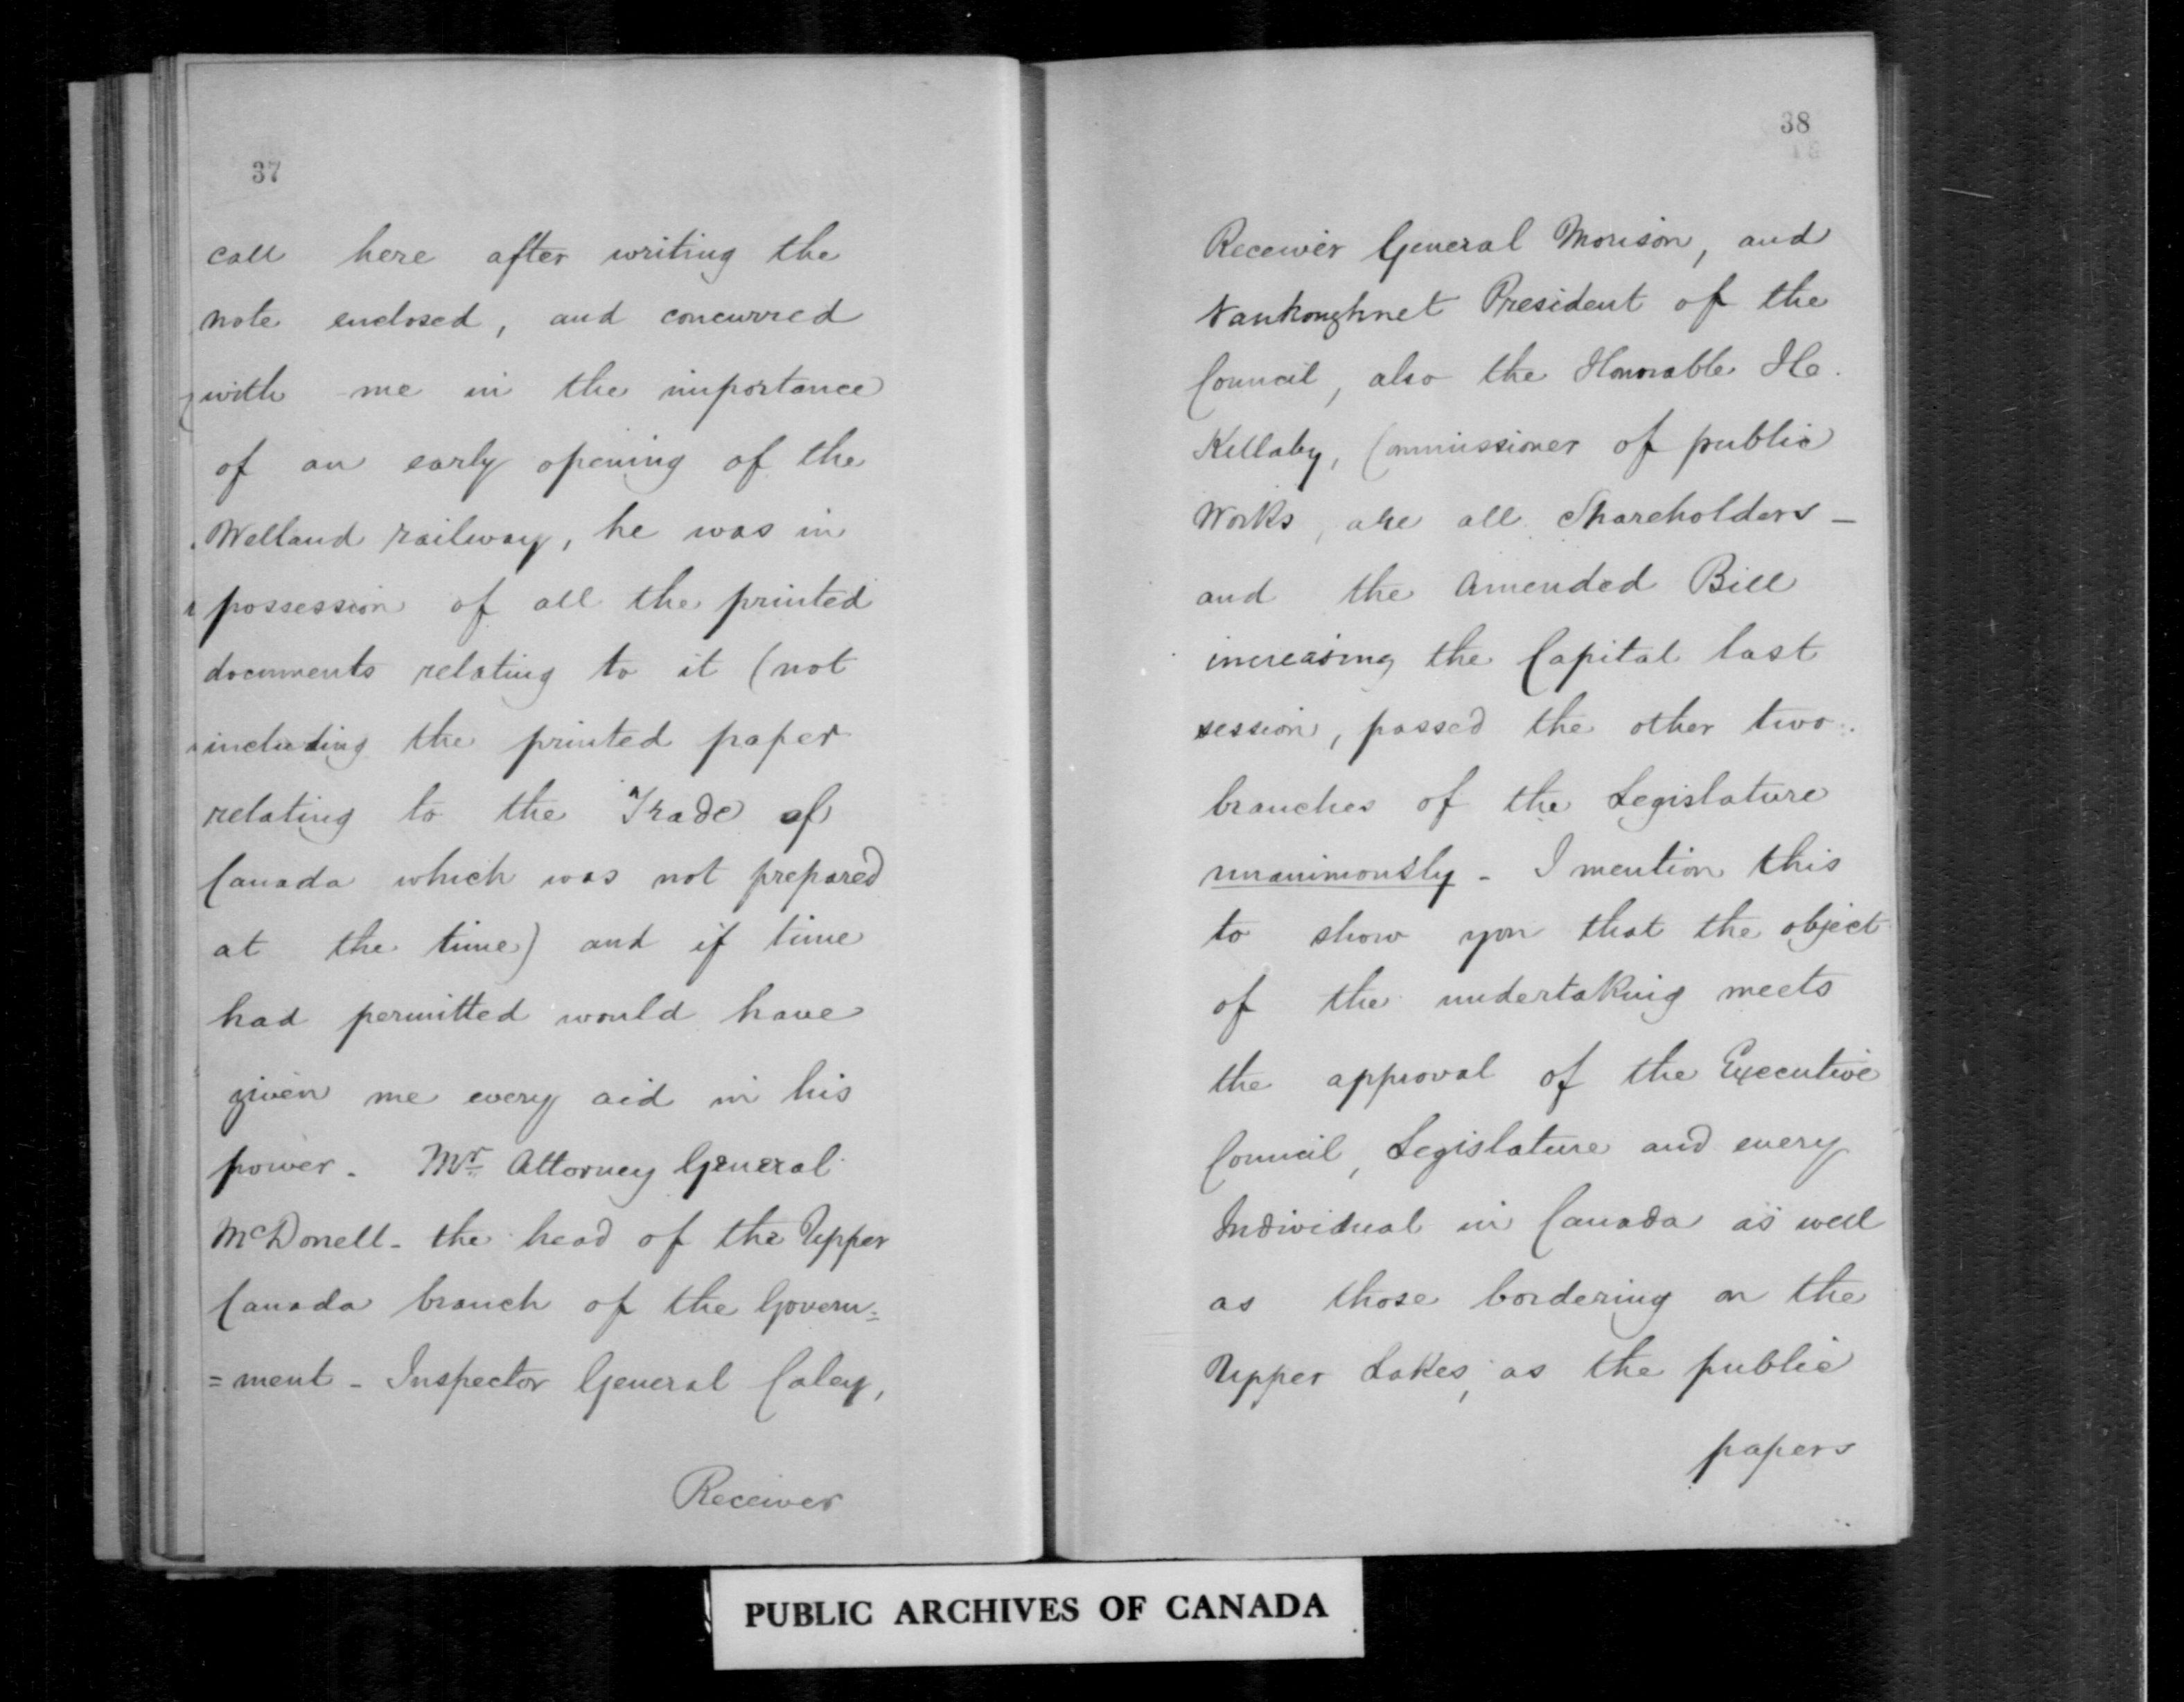 37
call here after writing the
note enclosed, and concurred
with me in the importance
of an early opening of the
Welland railway, he was in
possession of all the printed
documents relating to it (not
including the printed paper
relating to the Trade of
Canada which was not prepared
at the time) and if time
had permitted would have
given me every aid in his
power. Mr Attorney General
McDonell - the head of the Upper
Canada branch of the Govern=
=ment - Inspector General Caley,
Receiver
38
Receiver General Morison, and
Vankoughnet President of the
Council, also the Honorable He.
Killaby, Commissioner of public
Works, are all Shareholders -
and the Amended Bill
increasing the Capital last
session, passed the other two
branches of the Legislature
unanimously - I mention this
to show you that the object
of the undertaking meets
the approval of the Executive
Council, Legislature and every
Individual in Canada as well
as those bordering on the
Upper Lakes, as the public
papers
PUBLIC ARCHIVES OF CANADA